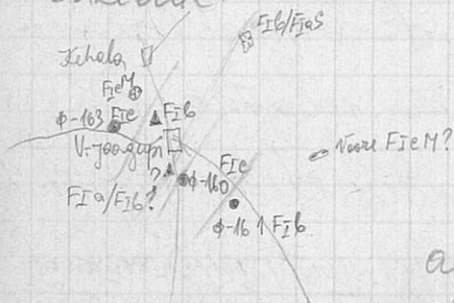 FIb/FIaS
Kehala
FIeM
Φ-163 FIe
FIb
V-Joogupi
Noore FIeM?
FIe
?
Φ-160
FIa/FIb?
Φ-16 ↑ FIb
a